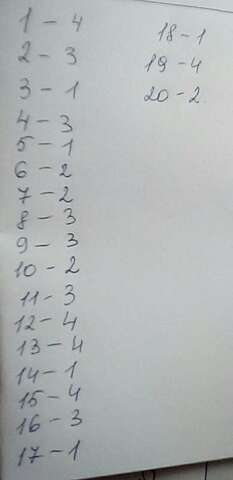 1 - 4
2 - 3
3 - 1
4 - 3
5 - 1
6 - 2
7 - 2
8 - 3
9 - 3
10 - 2
11 - 3
12 - 4
13 - 4
14 - 1
15 - 4
16 - 3
17 - 1
18 - 1
19 - 4
20 - 2.